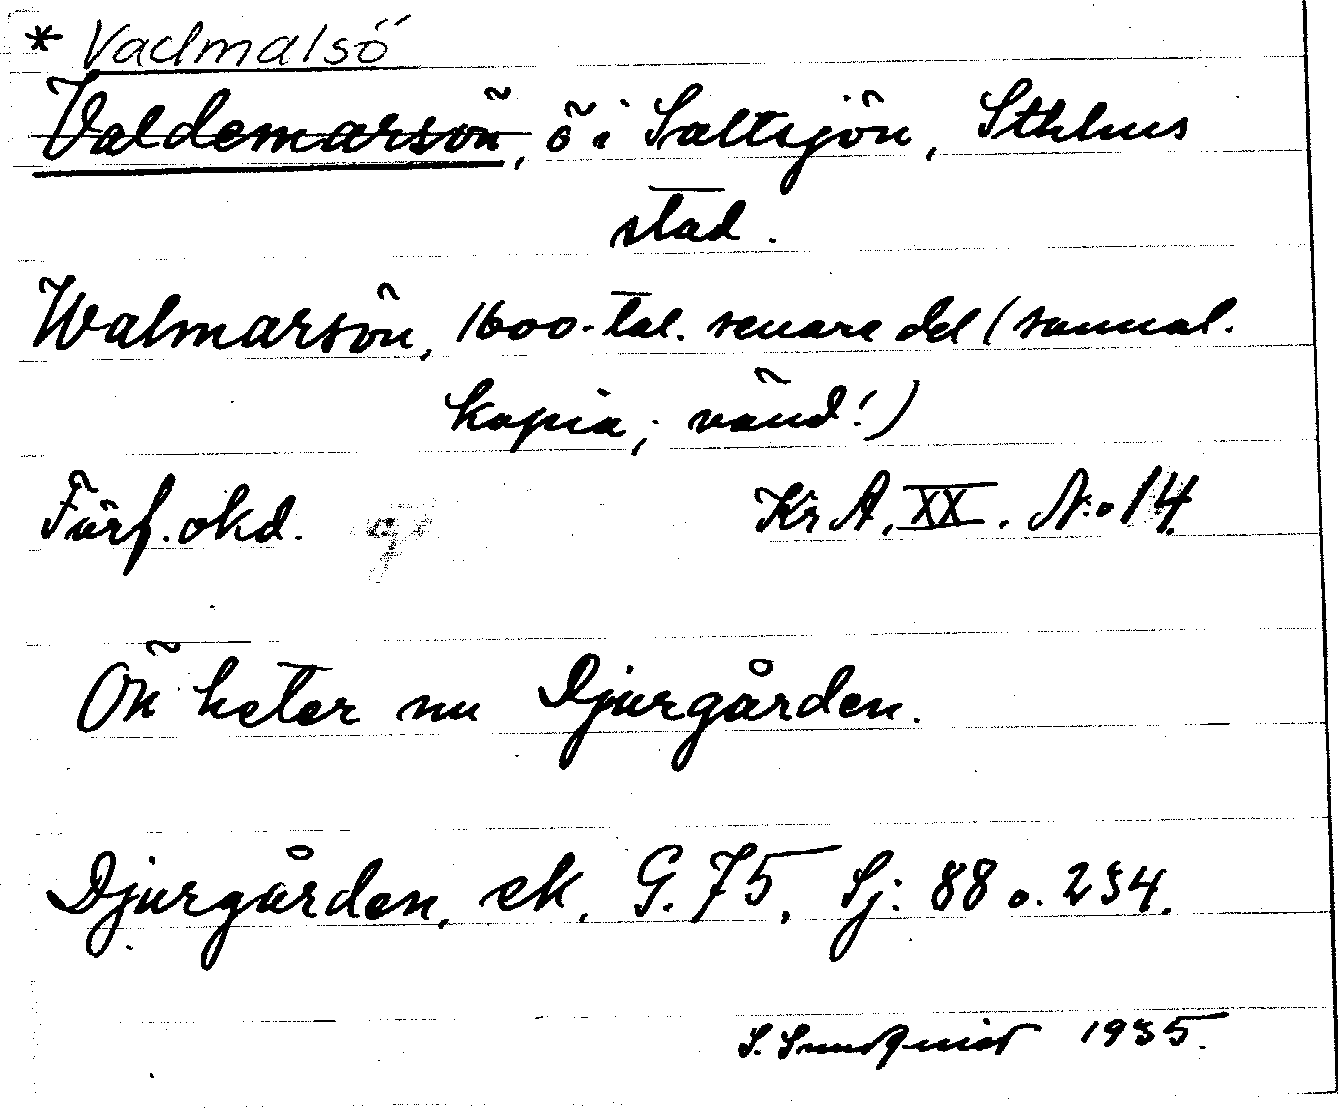 * Vadmalsö
Valdemarsön, ö i Saltsjön, Sthlms
stad.
Walmarsön, 1600-tal. senare del (samma.
kopia; vänd!)
Förf. okd. Kr A. XX. No 14.
Ön heter nu Djurgården.
Djurgården, ek. G. 75, Sj: 88 o. 234.
S. Sundquist 1935.